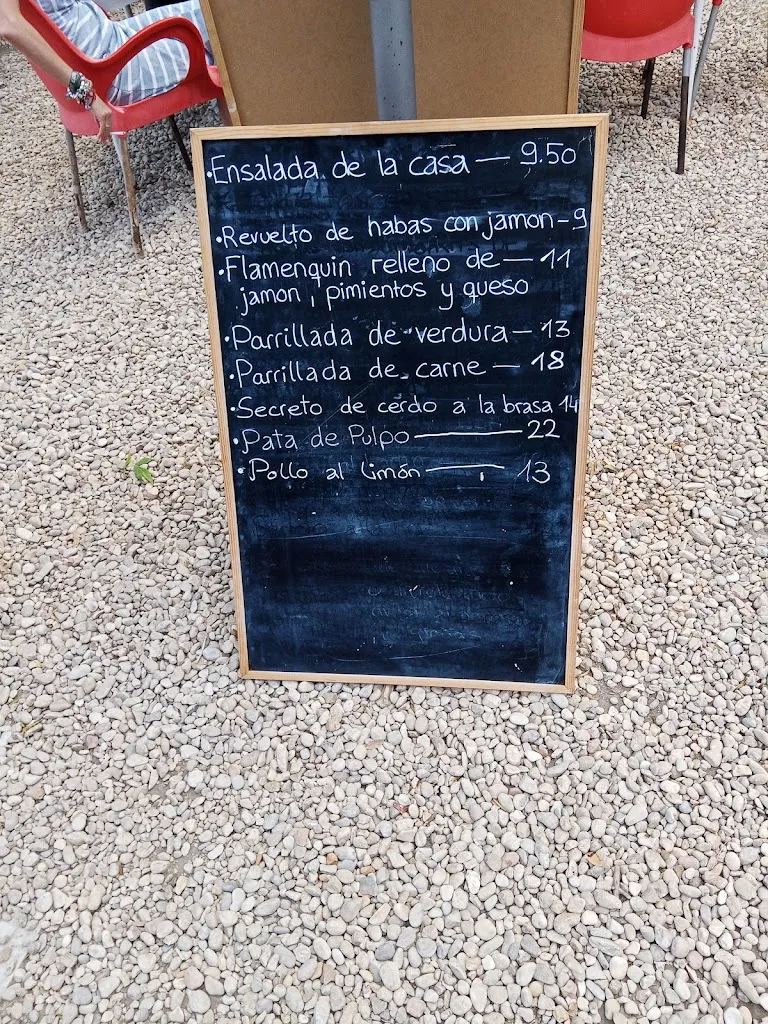 •Ensalada de la casa — 9.50
•Revuelto de habas con jamon - 9
•Flamenquin relleno de — 11
jamon, pimientos y queso
•Parrillada de verdura — 13
•Parrillada de carne — 18
•Secreto de cerdo a la brasa 14
•Pata de Pulpo — 22
•Pollo al limón — 13